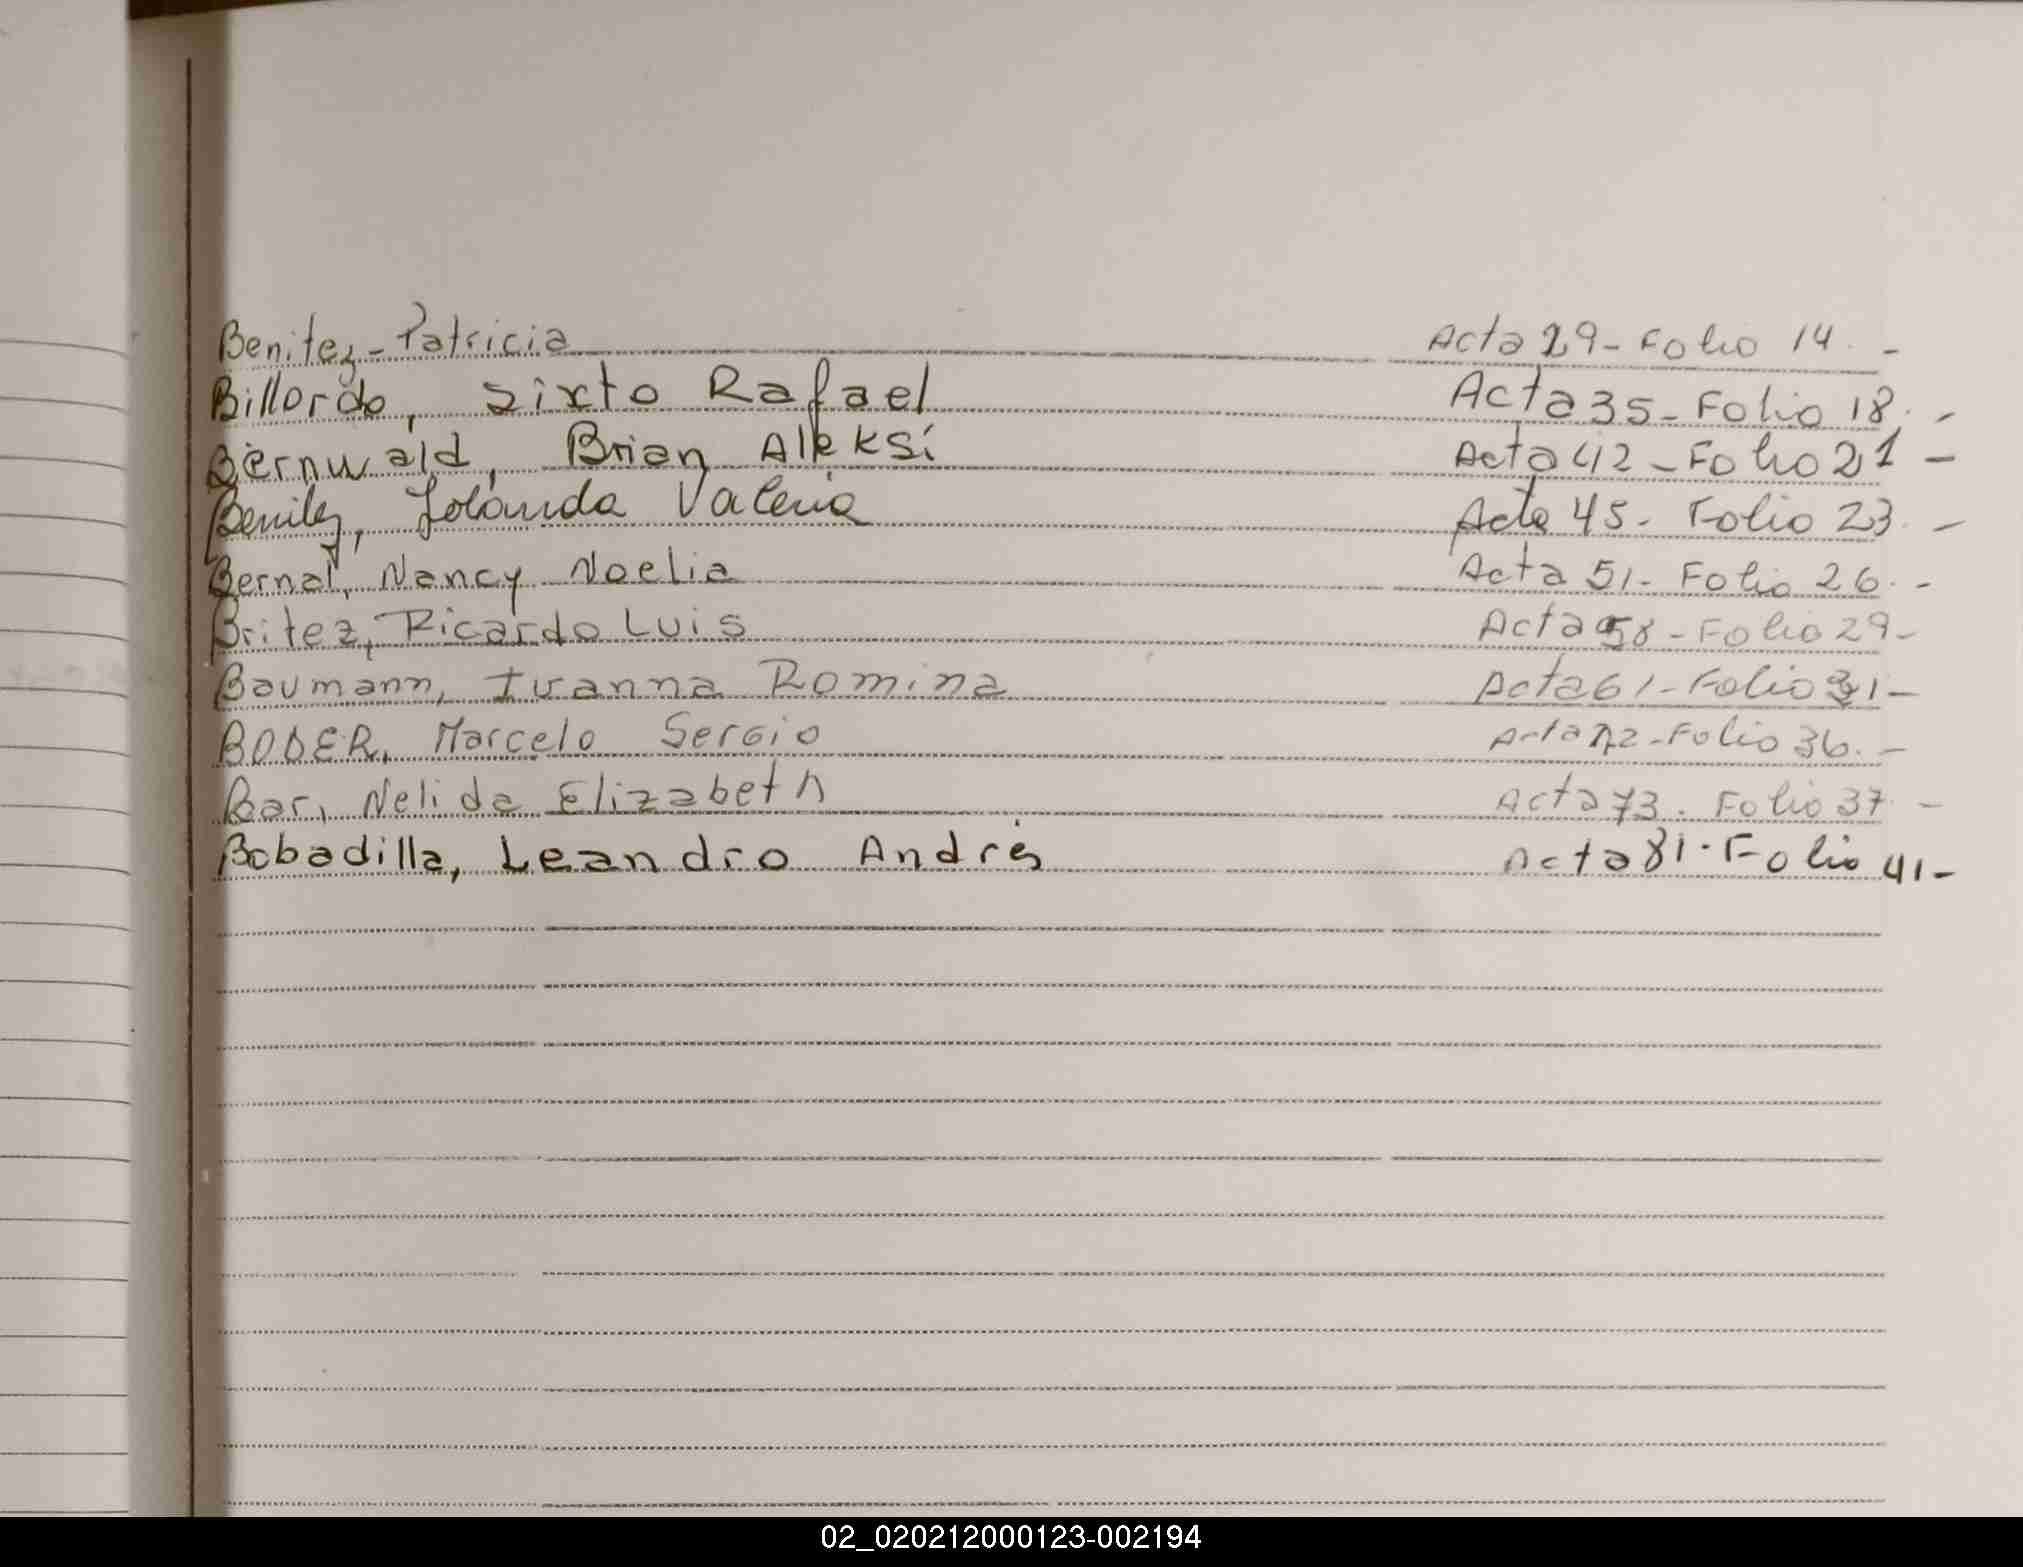 Benitez - Patricia Acta 29 - Folio 14. -
Billordo, Sixto Rafael Acta 35 - Folio 18. -
Bernwald, Brian Aleksi Acta 42 - Folio 21 -
Benitez, Yolanda Valeria Acta 45 - Folio 23. -
Bernal, Nancy Noelia Acta 51 - Folio 26. -
Britez, Ricardo Luis Acta 58 - Folio 29 -
Baumann, Ivanna Romina Acta 61 - Folio 31 -
BODER, Marcelo Sergio Acta 72 - Folio 36. -
Bar, Nelida Elizabeth Acta 73. Folio 37. -
Bobadilla, Leandro Andrés Acta 81 - Folio 41 -
02_020212000123-002194